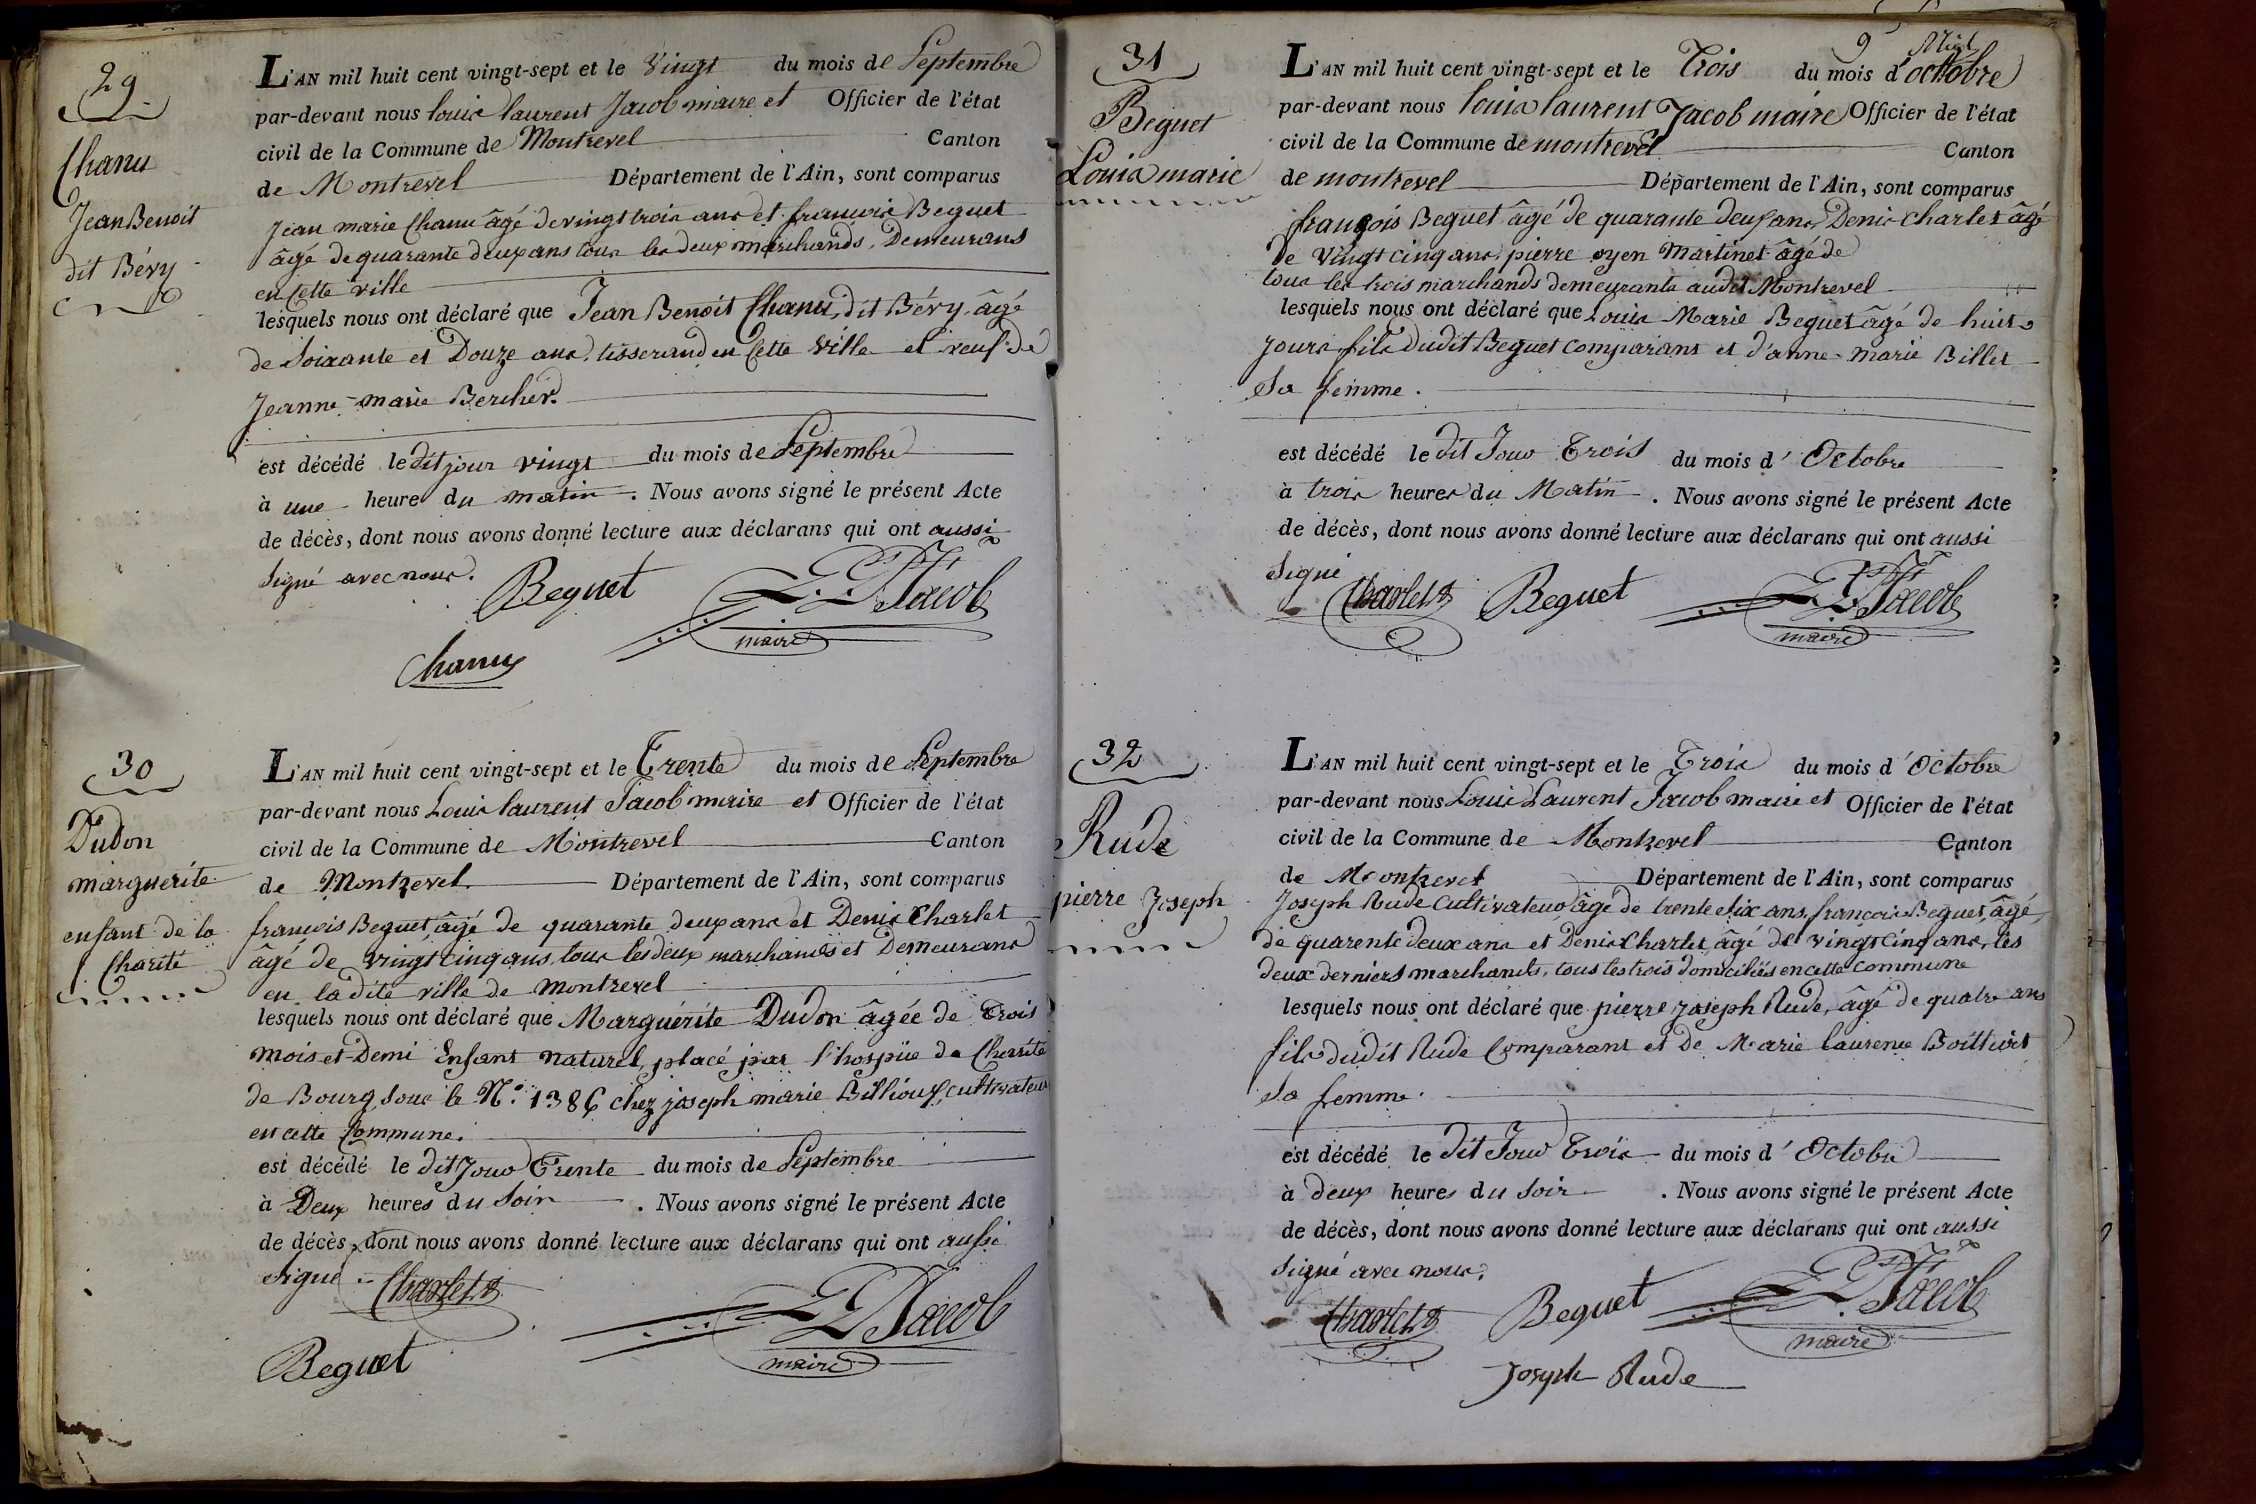 29
Chanu
Jean Benoit
dit Bévy
L'AN mil huit cent vingt-sept et le Vingt du mois de Septembre
par-devant nous Louis laurent Jacob maire et Officier de l'état
civil de la Commune de Montrevel Canton
de Montrevel Département de l'Ain, sont comparus
Jean marie Chanu âgé de vingt trois ans et francois Beguet
âgé de quarante deux ans tous les deux marchands, Demeurans
en Cette ville
lesquels nous ont déclaré que Jean Benoit Chanu, dit Bévy âgé
de Soixante et Douze ans, tisserand en Cette Ville et veuf de
Jeanne-marie Bercher.
est décédé le dit jour vingt du mois de Septembre
à une heure du matin. Nous avons signé le présent Acte
de décès, dont nous avons donné lecture aux déclarans qui ont aussi
Signé avec nous.
Beguet
L. L. Jacob
maire
Chanu
30
Dudon
marguerite
enfant de la
Charité
L'AN mil huit cent vingt-sept et le Trente du mois de Septembre
par-devant nous Louis laurent Jacob maire et Officier de l'état
civil de la Commune de Montrevel Canton
de Montrevel. Département de l'Ain, sont comparus
francois Beguet âgé de quarante deux ans et Denis Charlet
âgé de vingt cinq ans, tous les deux marchands et Demeurans
en la dite ville de montrevel
lesquels nous ont déclaré que Marguérite Dudon âgée de Trois
mois et Demi Enfant naturel, placé par l'hospice de Charité
de Bourg, sous le N.° 1386 chez joseph marie Billioux, cultivateur
en cette Commune.
est décédé le dit Jour Trente du mois de Septembre
à Deux heures du Soir. Nous avons signé le présent Acte
de décès, dont nous avons donné lecture aux déclarans qui ont aussi
Signé.
Charlet
L. L. Jacob
maire
Beguet
31
Beguet
Louis marie
L'AN mil huit cent vingt-sept et le Trois du mois d'octobre
par-devant nous louis laurent Jacob maire Officier de l'état
civil de la Commune de montrevel Canton
de montrevel Département de l'Ain, sont comparus
françois Beguet âgé de quarante deux ans, Denis Charlet âgé
de Vingt cinq ans, pierre oyen Martinet âgé de
tous les trois marchands demeurants audit Montrevel
lesquels nous ont déclaré que Louis Marie Beguet âgé de huit
jours, fils dudit Beguet comparant et d'anne-marie Billet
Sa femme.
est décédé le dit Jour Trois du mois d'Octobre
à trois heures du Matin. Nous avons signé le présent Acte
de décès, dont nous avons donné lecture aux déclarans qui ont aussi
Signé
Charlet
Beguet
L. L. Jacob
maire
32
Rude
pierre Joseph
L'AN mil huit cent vingt-sept et le Trois du mois d'Octobre
par-devant nous Louis Laurent Jacob maire et Officier de l'état
civil de la Commune de Montrevel Canton
de Montrevel Département de l'Ain, sont comparus
Joseph Rude Cultivateur âgé de trente six ans, francois Beguet, âgé
de quarente deux ans et Denis Charlet, âgé de vingt cinq ans, les
deux derniers marchands, tous les trois domiciliés en cette commune
lesquels nous ont déclaré que pierre joseph Rude, âgé de quatre ans
fils dudit Rude Comparant et de Marie laurence
Sa femme.
est décédé le dit Jour Trois du mois d'Octobre
à deux heures du Soir. Nous avons signé le présent Acte
de décès, dont nous avons donné lecture aux déclarans qui ont aussi
Signé avec nous.
Charlet
Beguet
L. L. Jacob
maire
Joseph Rude